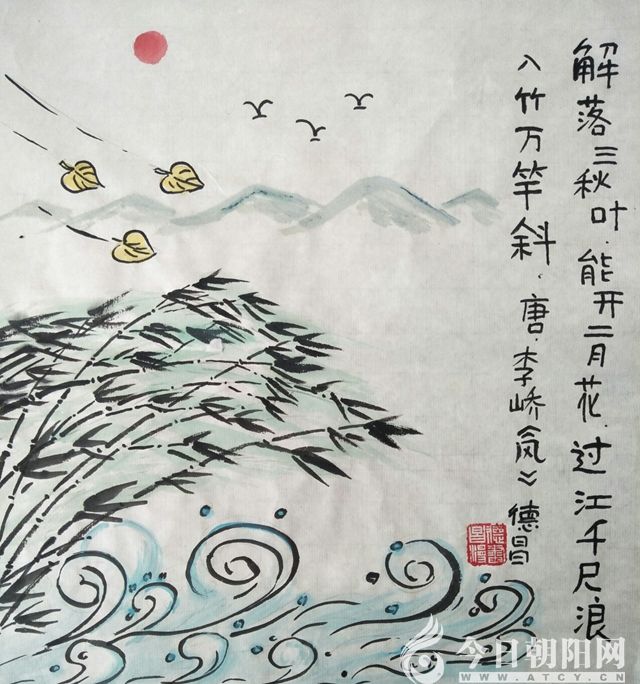 解落三秋叶.能开二月花.过江千尺浪
入竹万竿斜.唐.李峤风》德昌
今日朝阳网
WWW.ATCY.CN